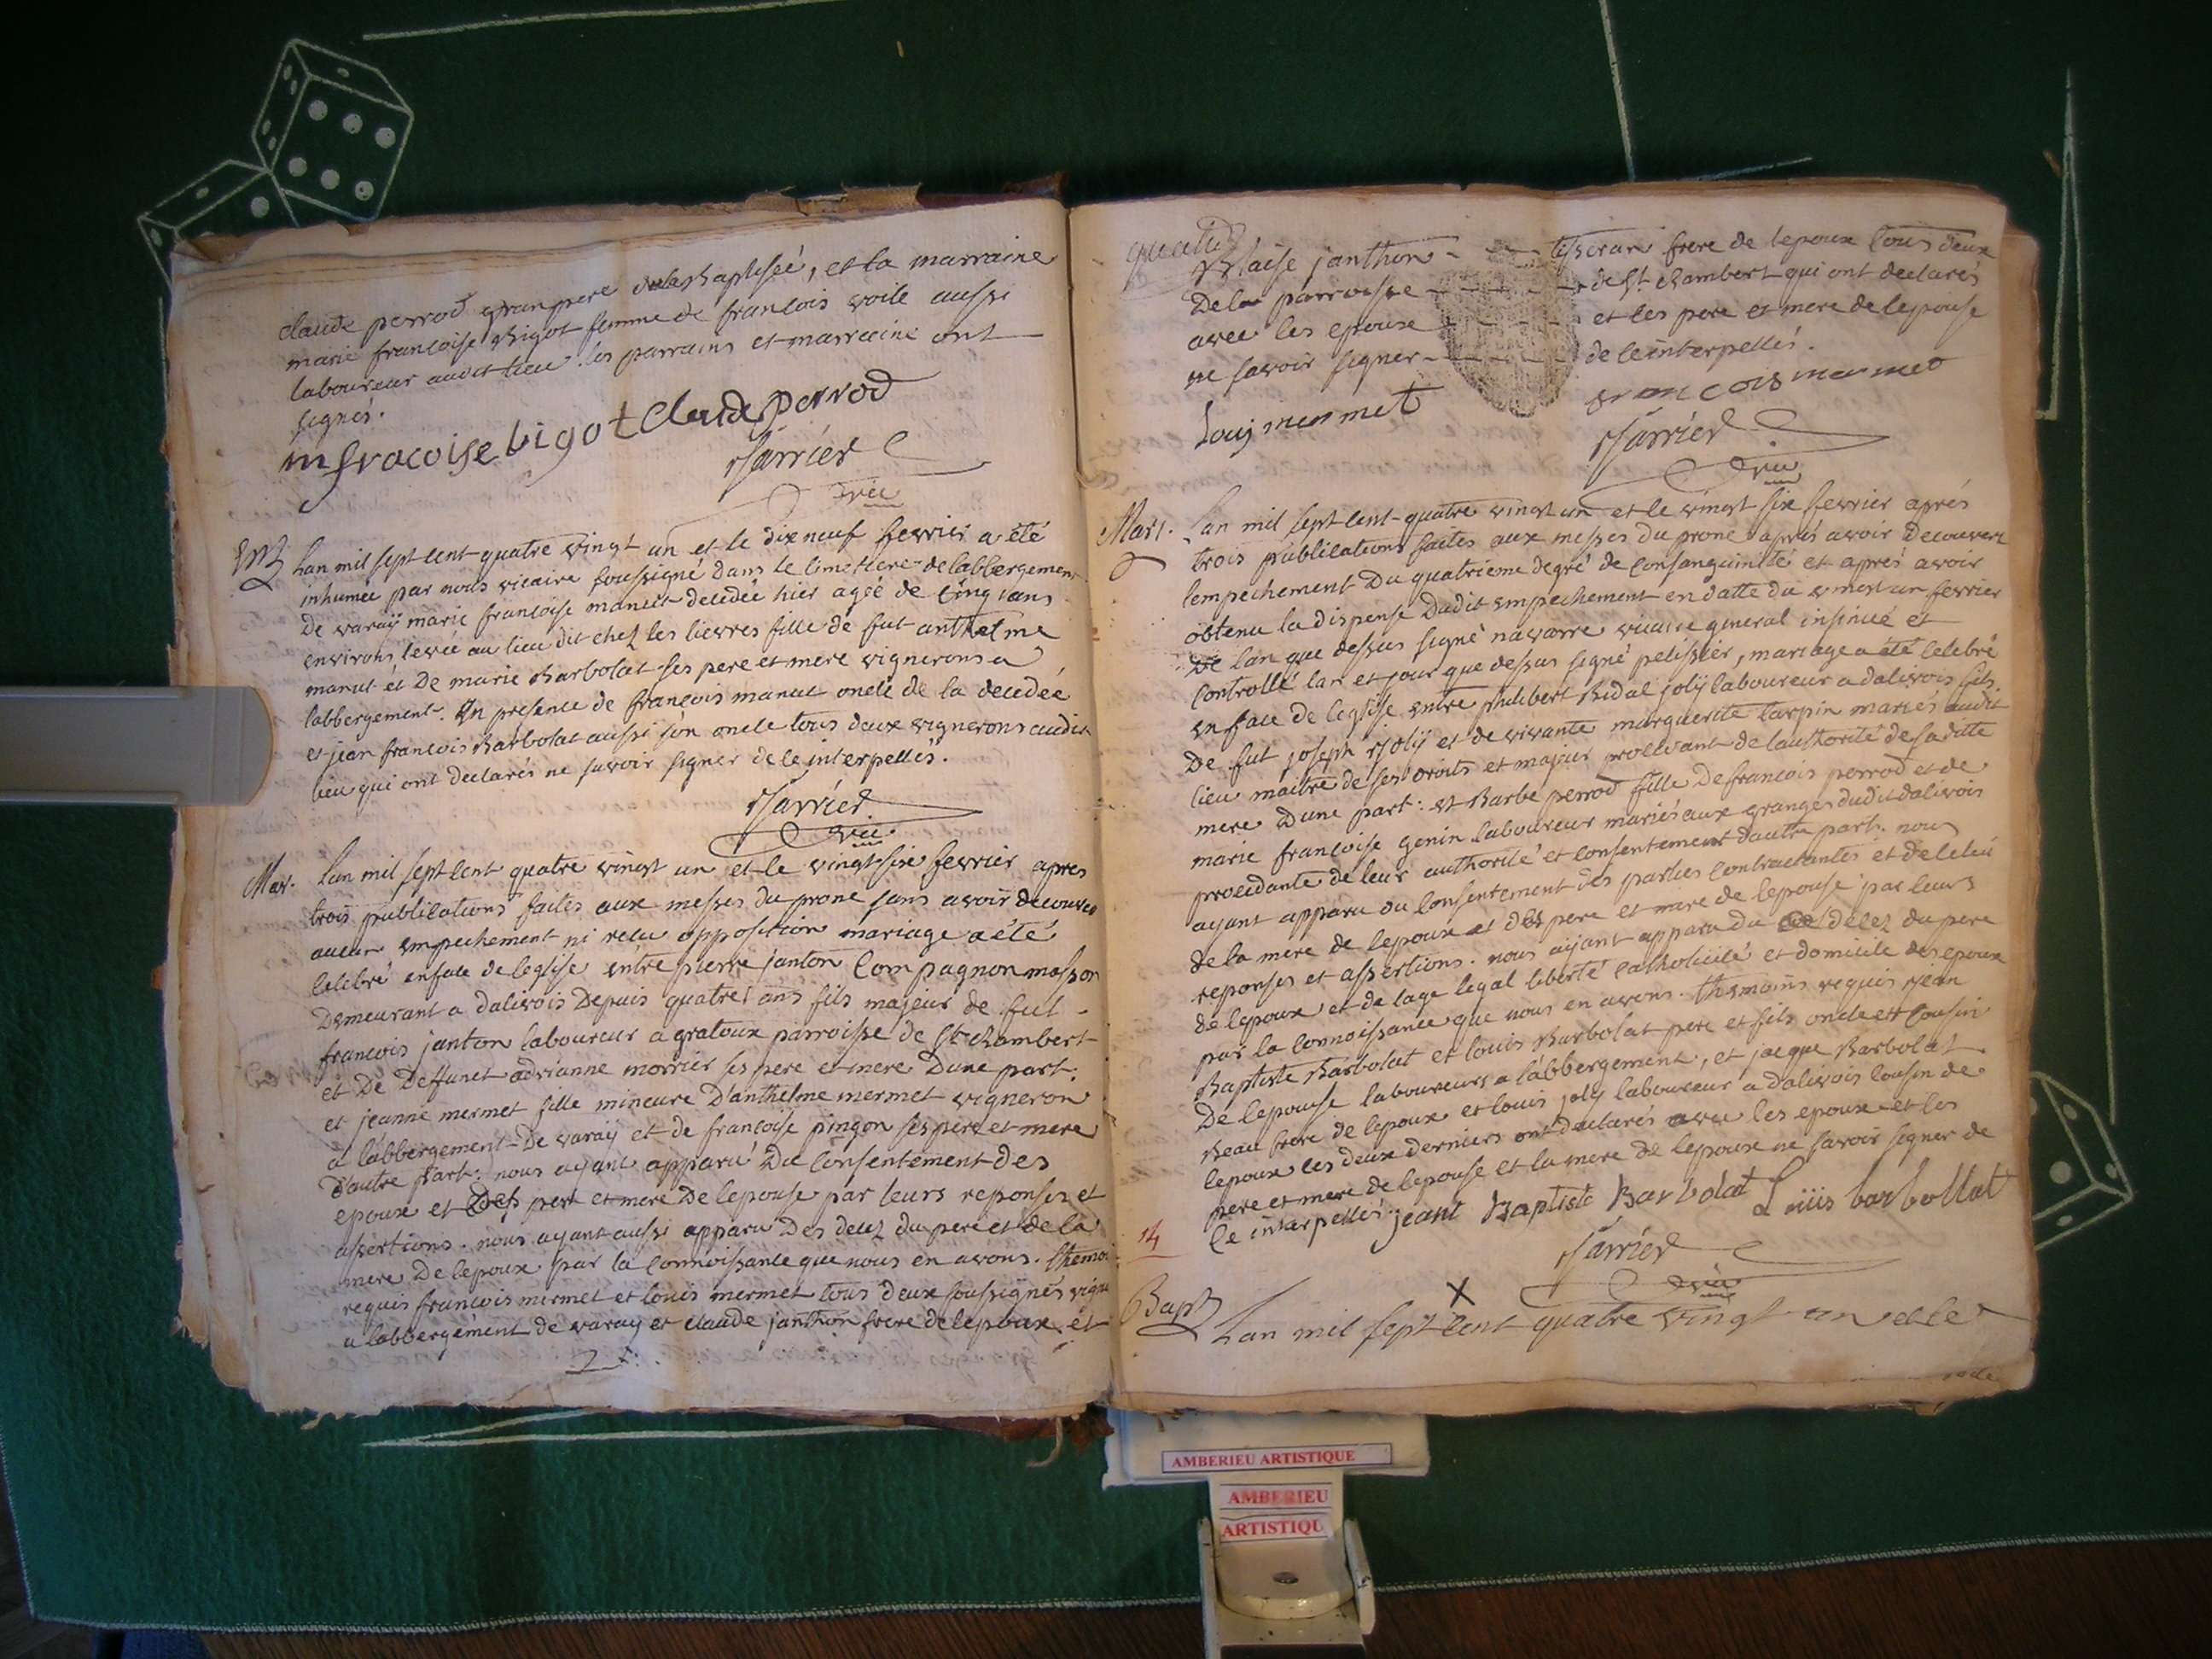 claude perrod granpere de la Baptisée, et la marraine
marie francoise Bigot femme de francois voile aussi
laboureur audit lieu. les parrains et marraine ont
signés.
m fracoise bigot Claude perrod
Jarrier
vic
Ent
Lan mil sept cent quatre vingt un et le dixneuf fevrier a été
inhumée par nous vicaire soussigné dans le cimetiere de labbergement
de varaÿ marie francoise manut decedée hier agée de cinq ans
environs levée au lieu dit chez les lievres fille de fut anthelme
manut et De marie Barbolat ses pere et mere vignerons a
labbergement. En presence de francois manut oncle de la decedée
et jean francois Barbolat aussi son oncle tous deux vignerons audit
lieu qui ont declarés ne savoir signer de ce interpellés.
Jarrier
vic
Mar.
Lan mil sept cent quatre vingt un et le vingt six fevrier apres
trois publications faites aux messes du prone sans avoir decouvert
aucun empechement ni recu opposition mariage a été
celebré en face de leglise entre pierre janton Compagnon masson
Demeurant a dalivois Depuis quatre ans fils majeur de fut
francois janton laboureur a gratoux parroisse de St Chambert
et De Deffunct adrianne morrier ses pere et mere Dune part:
et jeanne mermet fille mineure D'anthelme mermet vigneron
a labbergement De varaÿ et de francoise pingon ses pere et mere
d'autre part: nous ayant apparu Du Consentement des
epoux et Des pere et mere De lepouse par leurs reponses et
assertions. nous ayant aussi apparu Des decez du pere et de la
mere De lepoux par la connoissance que nous en avons. themoi
requis francois mermet et louis mermet tous deux soussignés vigne
a labbergement de varay et claude janthon frere de lepoux et
Blaise janthon tisseran frere de lepoux tous deux
De la parroisse de St Chambert qui ont declarés
avec les epoux et les pere et mere de lepouse
ne savoir signer de ce interpellés.
Louj mermet
francois mermet
Jarrier
vic
Mari.
Lan mil sept cent quatre vingt un et le vingt six fevrier aprés
trois publications faites aux messes du prone aprés avoir Decouvert
lempechement Du quatrieme degré de Consanguinité et aprés avoir
obtenu la dispense Dudit empechement en datte du vingt un fevrier
De lan que dessus signé navarre vicaire general insinué et
Controllé lan et jour que dessus signé pelissier, mariage a été celebré
en face de leglise entre philibert Bidal jolÿ laboureur a dalivois fils
De fut joseph Jolÿ et de vivante marguerite tarpin mariés audit
lieu maitre de ses droits et majeur procedant de lauthorité de sa ditte
mere Dune part: et Barbe perrod fille De francois perrod et de
marie francoise genin laboureur mariés aux granges dudit dalivois
procedante de leur authorité et consentement dautre part. nous
ayant apparu du Consentement des parties contractantes et de celui
de la mere de lepoux et des pere et mere de lepouse par leurs
reponses et assertions. nous aÿant apparu du decez du pere
de lepoux et de lage legal liberté catholicité et domicile des epoux
par la connoissance que nous en avons. themoins requis Jean
Baptiste Barbolat et louis Barbolat pere et fils oncle et cousin
De lepouse laboureurs a labbergement, et jacque Barbolat
Beau frere de lepoux et louis joly laboureur a dalivois cousin de
lepoux les deux derniers ont declarés avec les epoux et les
pere et mere de lepouse et la mere de lepoux ne savoir signer de
Ce interpellés. jeant Baptiste Barbolat Louis barbollat
14
Jarrier
vic
X
Bapt
Lan mil sept cent quatre vingt un et le
AMBERIEU ARTISTIQUE
AMBERIEU
ARTISTIQU